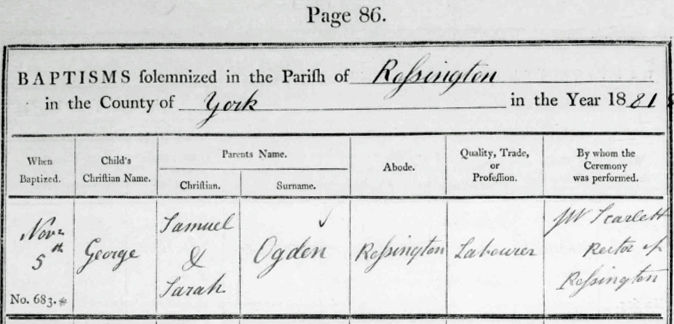 Page 86.
BAPTISMS solemnized in the Parish of Rossington
in the County of York in the Year 1881
When Baptized.
Child's Christian Name.
Parents Name.
Christian.
Surname.
Abode.
Quality, Trade, or Profession.
By whom the Ceremony was performed.
Novr
5th
No. 683.
George
Samuel
&
Sarah
Ogden
Rossington
Labourer
JW Scarlett
Rector of
Rossington